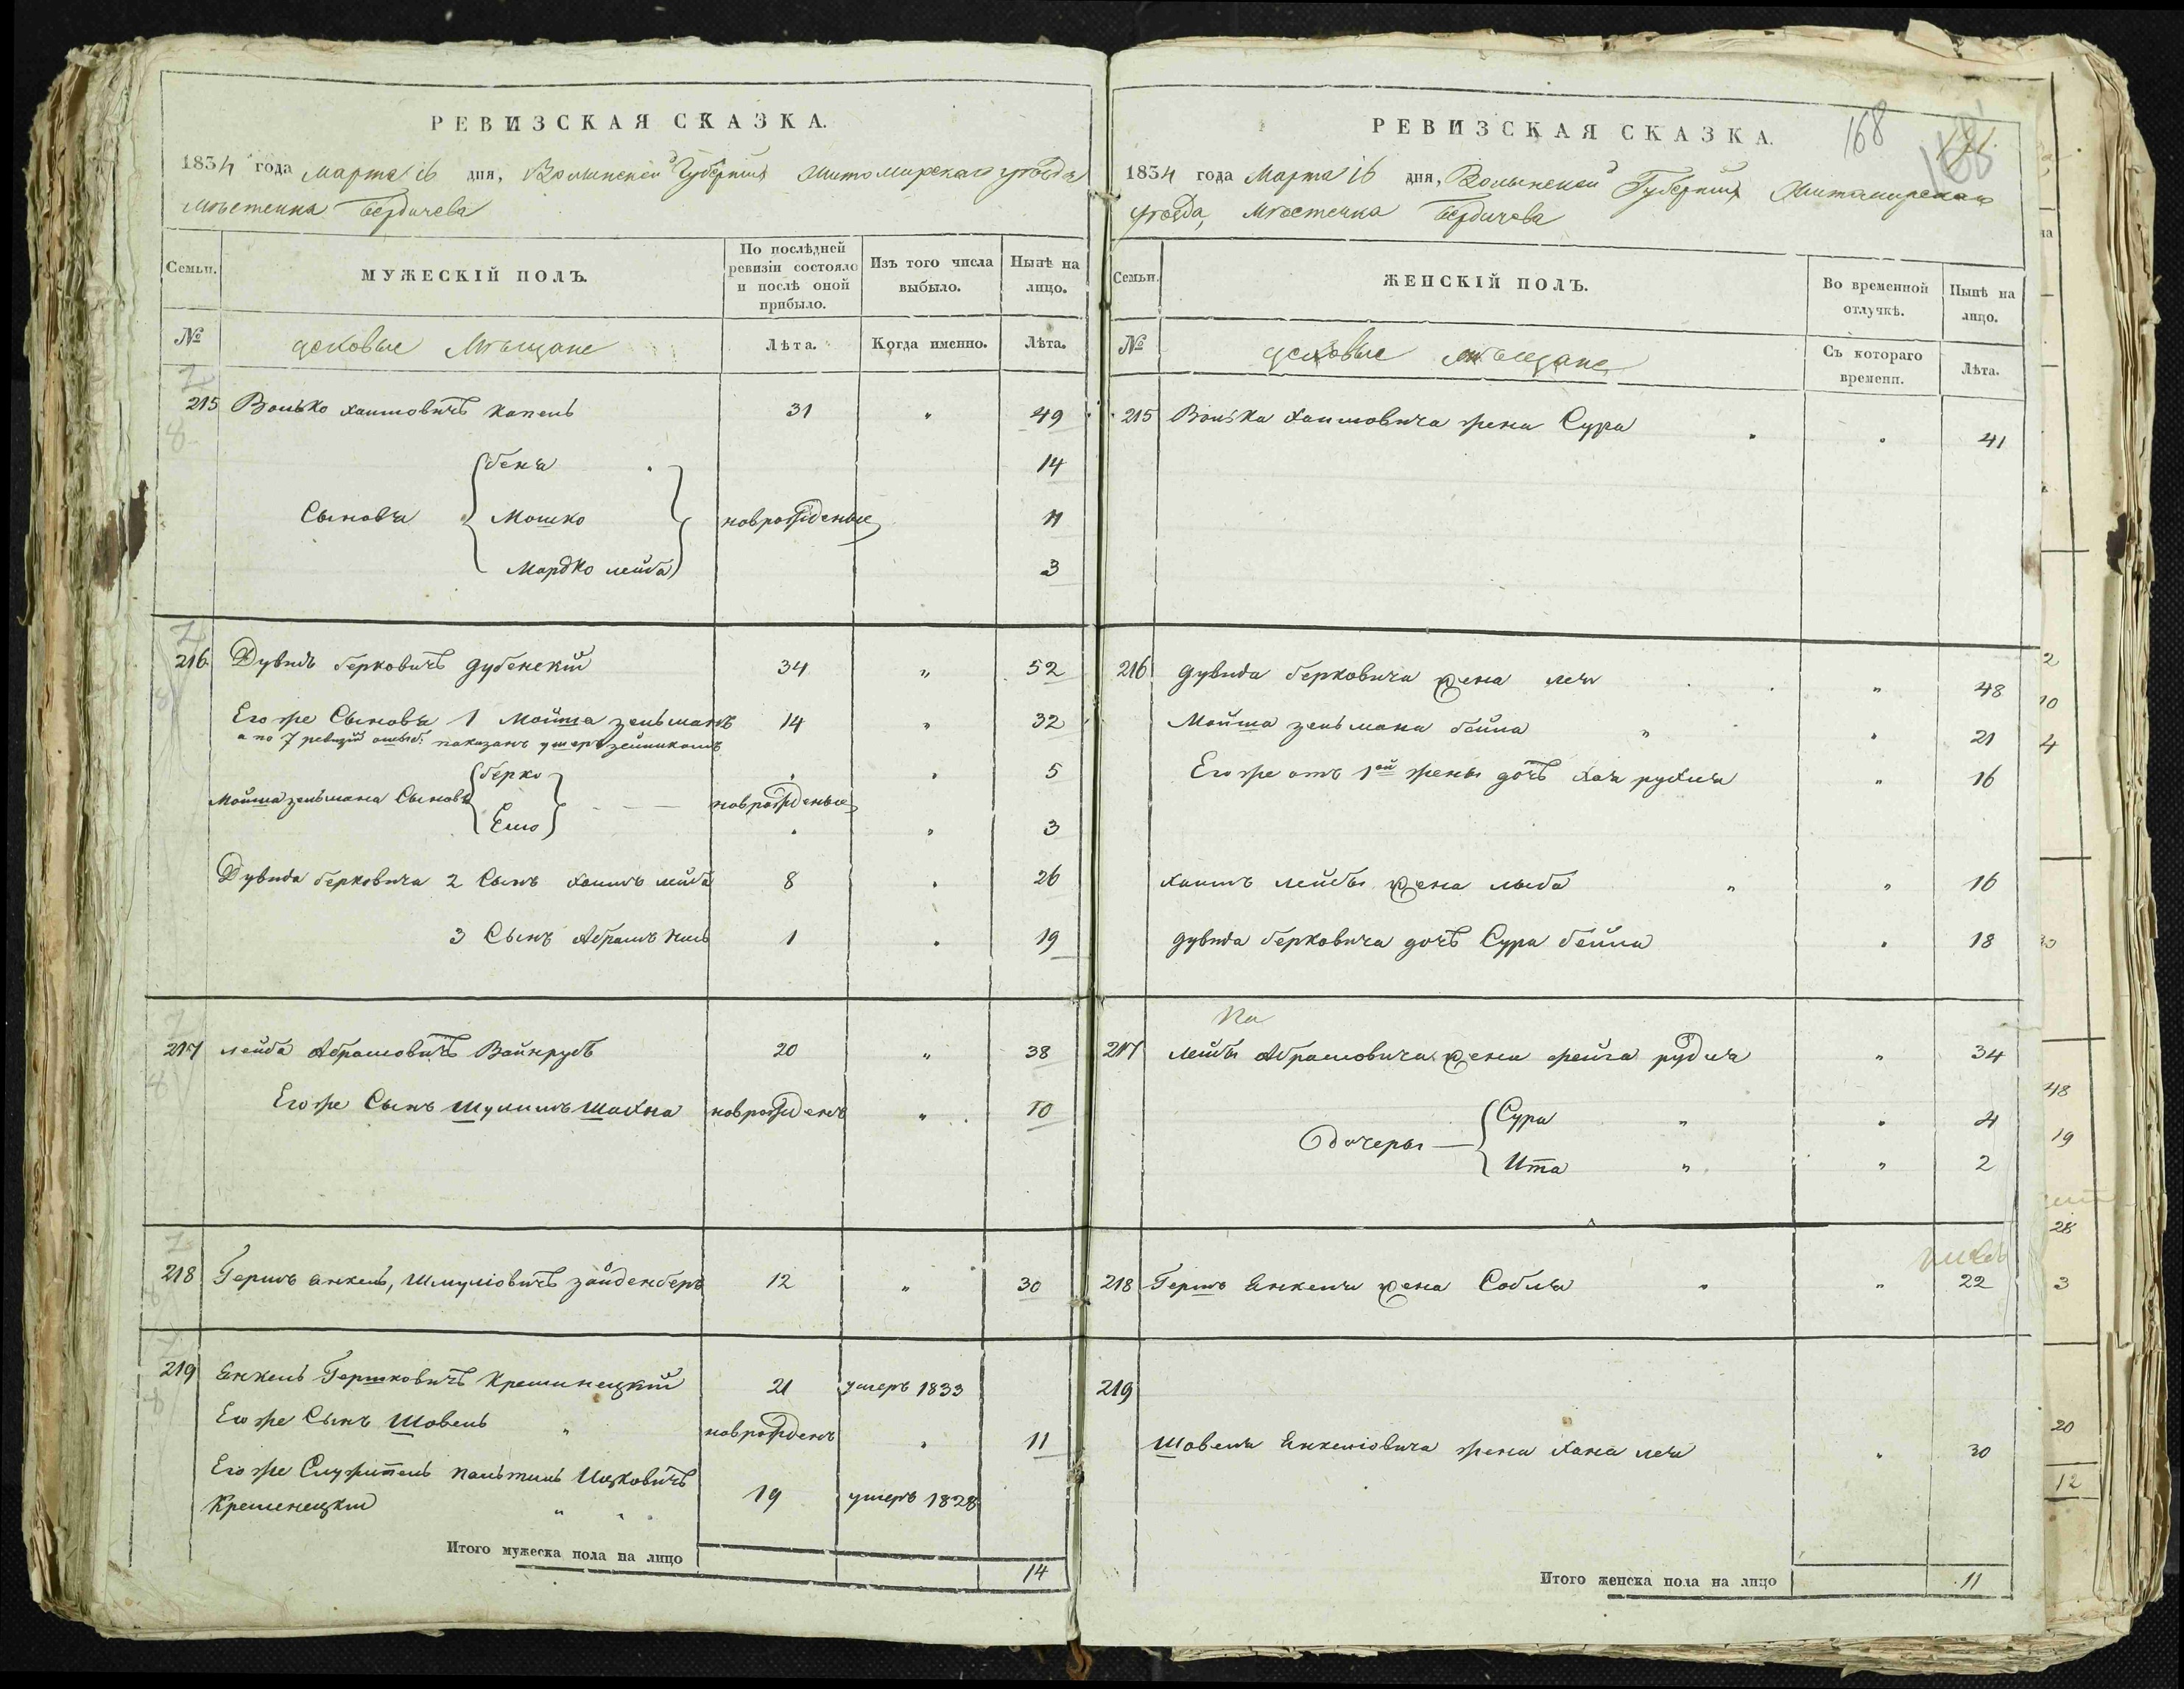 РЕВИЗСКАЯ СКАЗКА.
1834 года Марта 16 дня, Волынской Губернии Житомирскаго уѣзда
мѣстечка Бердичева
Семьи.
МУЖЕСКІЙ ПОЛЪ.
По послѣдней ревизіи состояло и послѣ оной прибыло.
Изъ того числа выбыло.
Нынѣ на лицо.
№
цеховые Мѣщане
Лѣта.
Когда именно.
Лѣта.
215 Волько Хаимовичъ Капель 31 " 49
Сыновья
беня 14
Мошко новрожденые 11
Мардко лейба 3
216 Дувидъ берковичъ дубенскій 34 " 52
Его же Сыновья 1 Мойша зельманъ 14 " 32
а по 7 ревизіи показанъ умер
Мойша зельмана Сыновья
берко " 5
новрожденые
" 3
Дувида берковича 2 Сынъ хаимъ лейба 8 " 26
3 Сынъ Абрамъ 1 " 19
217 лейба Абрамовичъ Вайнрубъ 20 " 38
Его же Сынъ Шулимъ Шахна новрожденъ " 10
218 Гершъ Янкель, Шмуліовичъ зайденберъ 12 " 30
219 Янкель Гершковичъ Кременецкій 21 умеръ 1833
Его же Сынъ Шовель " новрожденъ " 11
Его же Служитель пальтиль Ицковичъ
Кременецкій 19 умеръ 1828
Итого мужеска пола на лицо 14
168
РЕВИЗСКАЯ СКАЗКА.
1834 года Марта 16 дня, Волынской Губерніи Житомирскаго
уѣзда, Мѣстечка Бердичева
Семьи.
ЖЕНСКІЙ ПОЛЪ.
Во временной отлучкѣ.
Нынѣ на лицо.
№
цеховые мѣщане
Съ котораго времени.
Лѣта.
215 Волька Хаимовича жена Сура " 41
216 дувида берковича жена лея " 48
Мойша зельмана бейла " 21
Его же отъ 1ой жены дочь Хая рухля " 16
хаимъ лейбы жена 16
дувида берковича дочь Сура бейла " 18
217 лейбы Абрамовича жена фейга рудля " 34
дочеры
Сура " 4
Ита " 2
218 Гершъ Янкеля жена Собля " 22
219
Шовеля Янкеліовича жена хана лея " 30
Итого женска пола на лицо 11